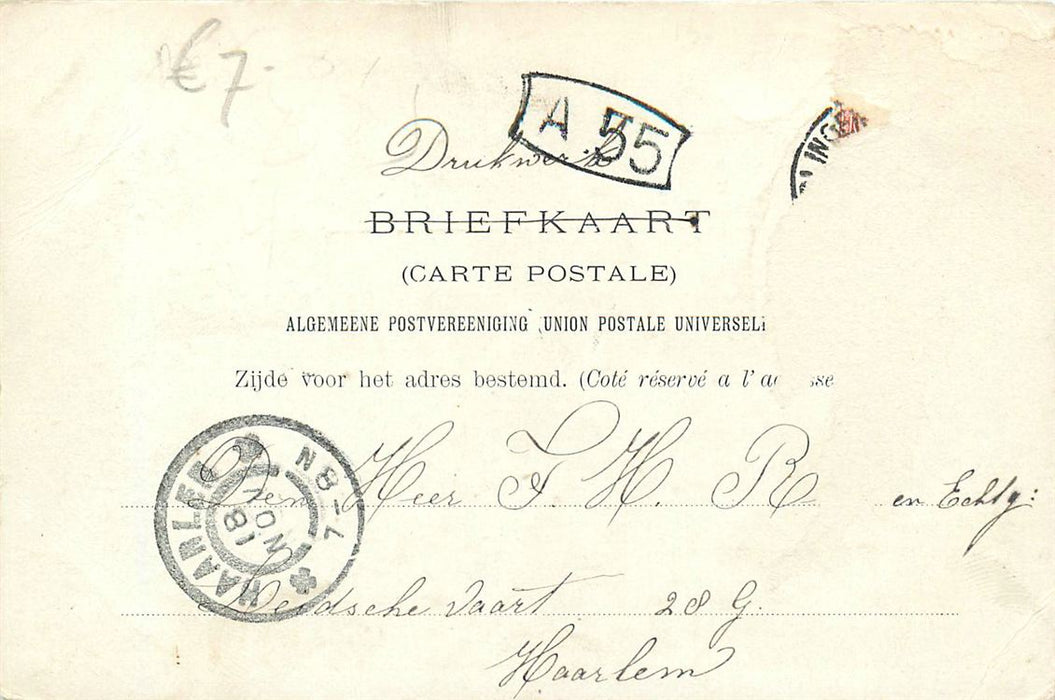 € 7.-
A 35
LINGEN
Drukwerk
BRIEFKAART
(CARTE POSTALE)
ALGEMEENE POSTVEREENIGING UNION POSTALE UNIVERSELL
Zijde voor het adres bestemd. (Coté réservé a l'a sse
HAARLEM
7-8N
18 NO
Den Heer F H. R en Echtg:
Leidsche Vaart 28 G.
Haarlem